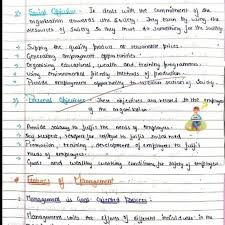 2) Social Objective : It deals with the commitment of the
organisation towards the society. They by using the
resources of society so they must do something for the society
→ Supply the quality product at reasonable prices.
→ Generating employment opportunities.
→ Organising educational, health and training programmes.
→ Using environmental friendly methods of production.
→ Provide employment opportunity to section of society.
3) Personal Objectives : These objectives are related to the employees
of the organisation
→ Provide salary to fulfil the needs of employees.
→ respect for to fulfil social need
→ Promotion, training, development of employees to fulfil
needs of employees.
→ Good and healthy working conditions for safety of employees
Features of Management
Management is Goal Oriented Process :
Management unites the efforts of different individuals in the